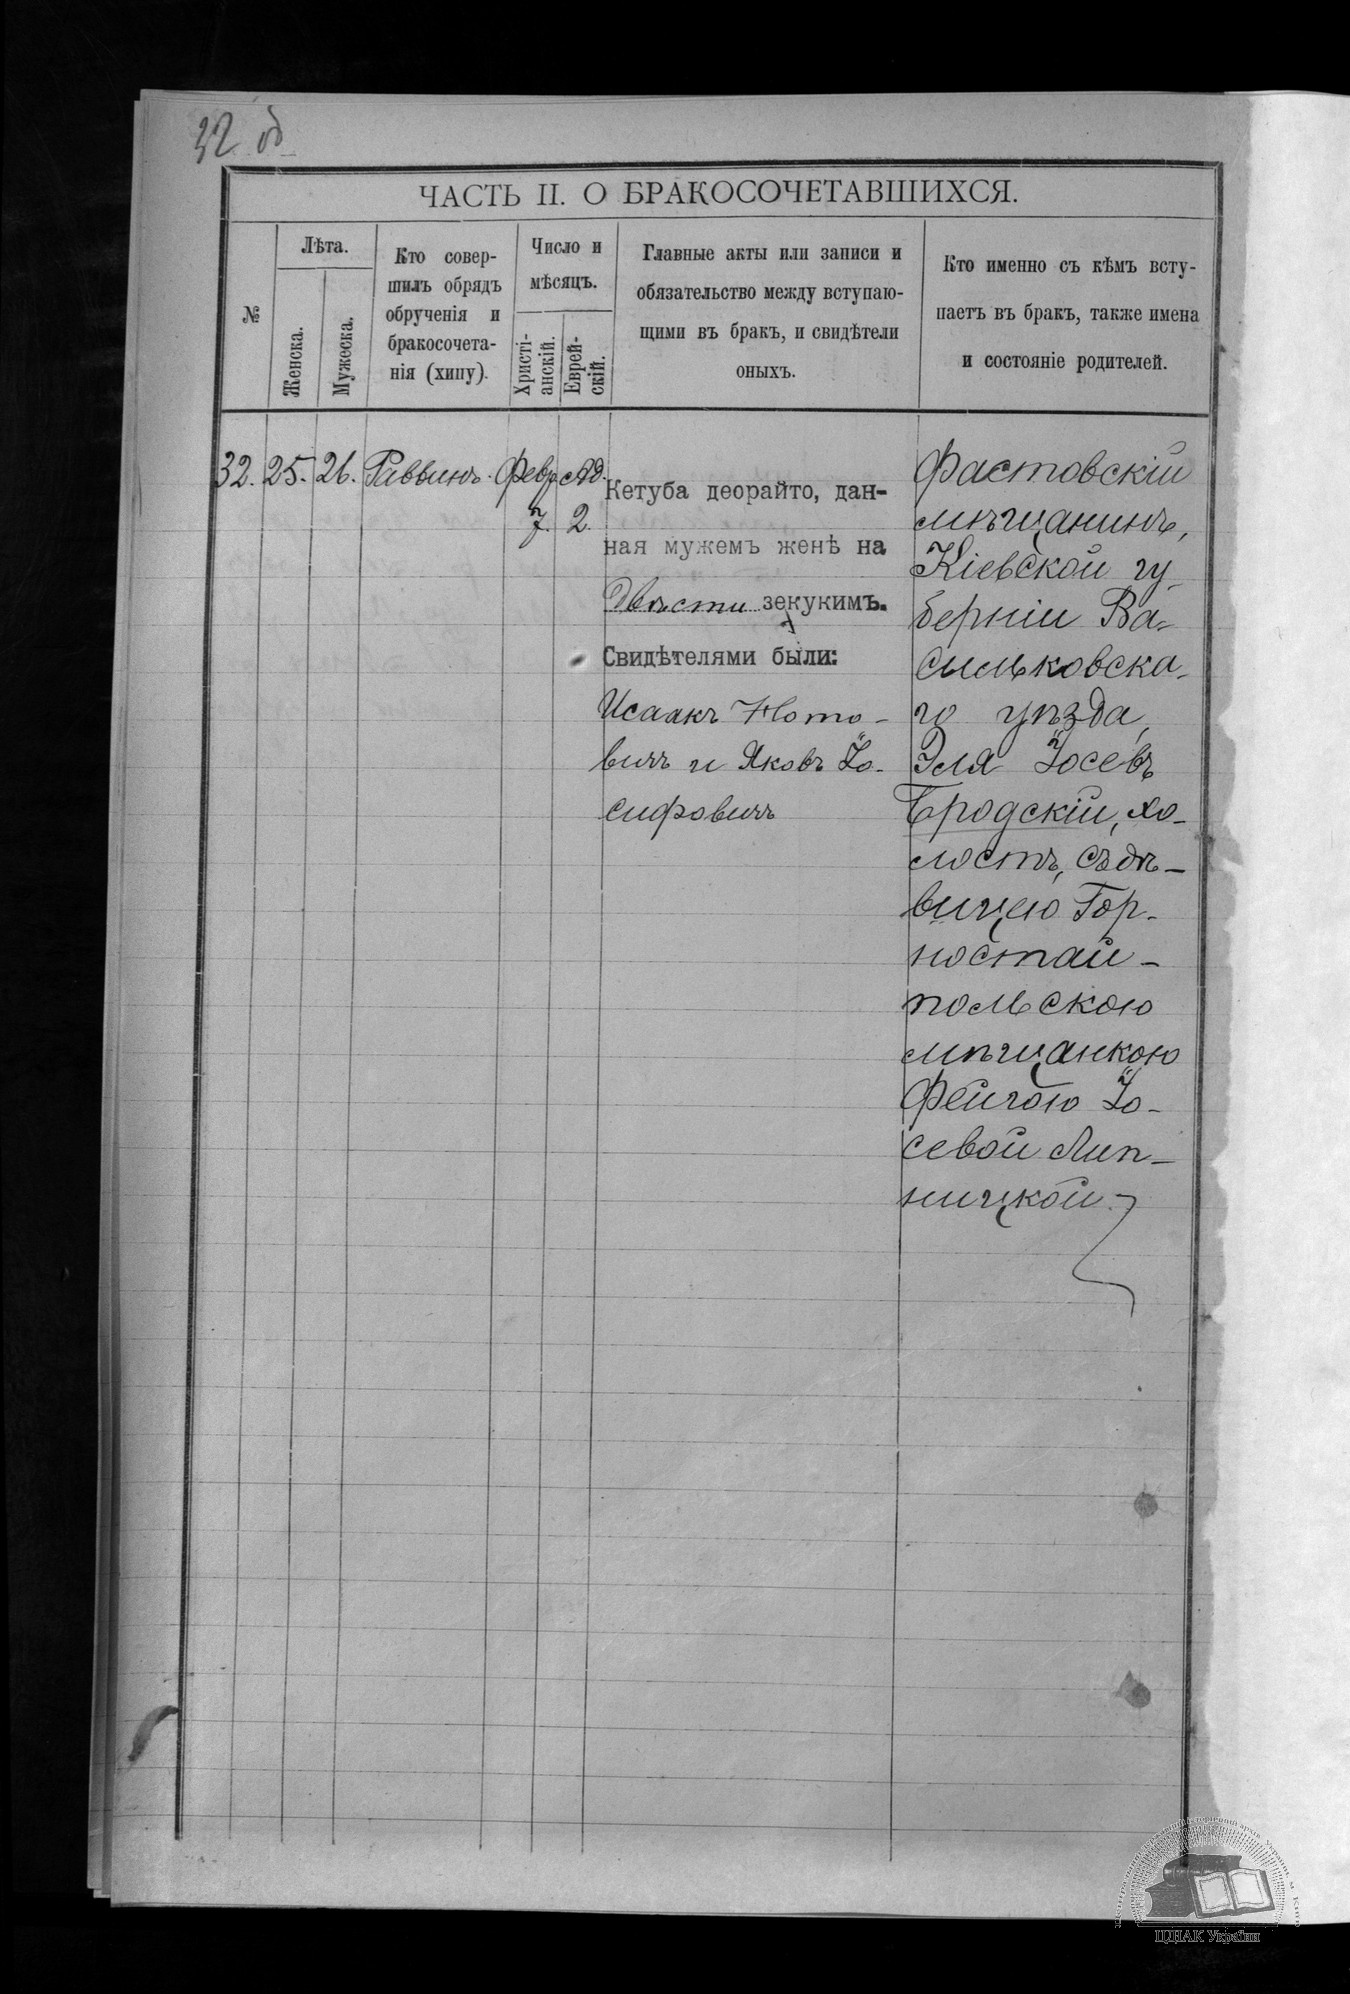 32 об
ЧАСТЬ II. О БРАКОСОЧЕТАВШИХСЯ.
№
Лѣта.
Женска.
Мужеска.
Кто совер-
шилъ обрядъ
обрученія и
бракосочета-
нія (хипу).
Число и
мѣсяцъ.
Христі-
анскій.
Еврей-
скій.
Главные акты или записи и
обязательство между вступаю-
щими въ бракъ, и свидѣтели
оныхъ.
Кто именно съ кѣмъ всту-
паетъ въ бракъ, также имена
и состояніе родителей.
32. 25. 26. Раввинъ. Февр. Ад.
7. 2.
Кетуба деорайто, дан-
ная мужемъ женѣ на
Двѣсти зекукимъ.
Свидѣтелями были:
Исаакъ Ното-
вичъ и Яковъ Іо-
сифовичъ
Фастовскій
мѣщанинъ,
Кіевской гу-
берніи Ва-
сильковска-
го уѣзда,
Эля Іосевъ
Бродскій, хо-
лостъ, съ дѣ-
вицею Гор-
ностай-
польскою
мѣщанкою
Фейгою Іо-
севой Лип-
ницкой.
ЦДІАК України